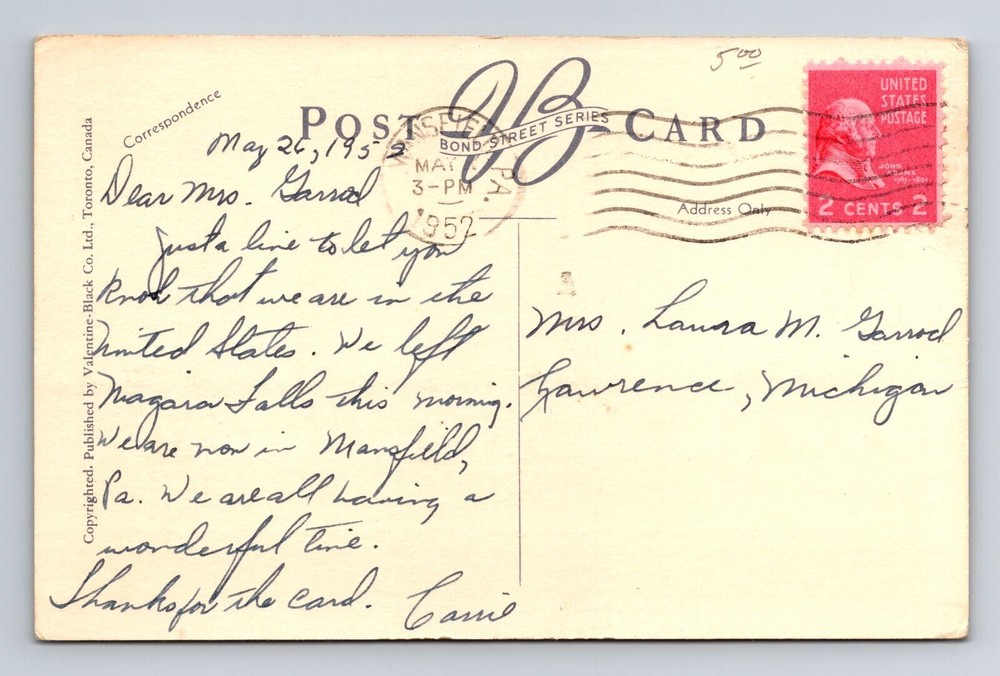 5 00
Correspondence
POST CARD
VB
BOND STREET SERIES
MANSFIELD PA.
MAY
3-PM
1952
UNITED
STATES
POSTAGE
JOHN
ADAMS
1797-1801
2 CENTS 2
Address Only
May 26, 1952
Dear Mrs. Garrod
Just a line to let you
know that we are in the
United States. We left
Niagara Falls this morning.
We are now in Mansfield,
Pa. We are all having a
wonderful time.
Thanks for the card. Carrie
Mrs. Laura M. Garrod
Lawrence, Michigan
Copyrighted. Published by Valentine-Black Co. Ltd., Toronto, Canada